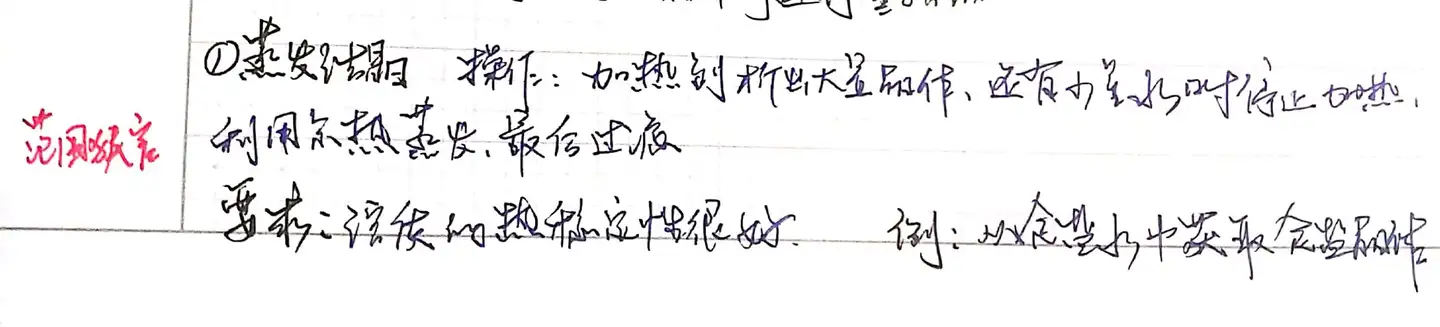 ①蒸发结晶 操作：加热到析出大量晶体、还有少量水时停止加热，
利用余热蒸发，最后过滤
范围较窄
要求：溶质的热稳定性很好． 例：从食盐水中获取食盐晶体